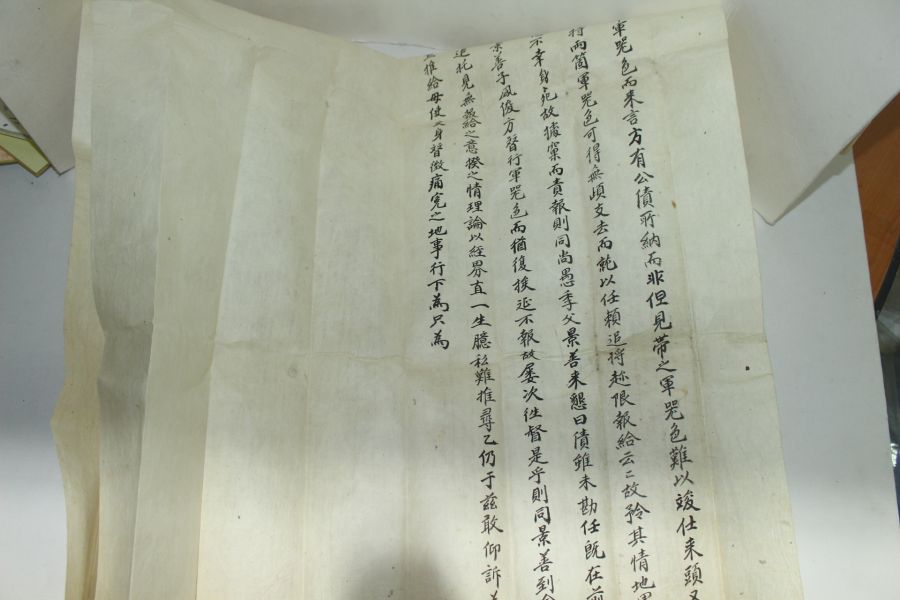 軍器色而来言方有公債所納而非但見帶之軍器色難以竣仕来頭又
将兩箇軍器色可得無頉支去而純以任頼追将趂限報給云〻故矜其情地
宗幸身死故據窠而責報則同尚愚季父景善来懇曰債雖未勘任旣在前
景善子鳳俊方督行軍器色而猶復挨延不報故屡次徃督是乎則同景善到今
追托見無報給之意揆之情理論以經界直一生臆私難推尋乙仍于玆敢仰訴
推給毋使〻身督徴痛寃之地事行下爲只爲